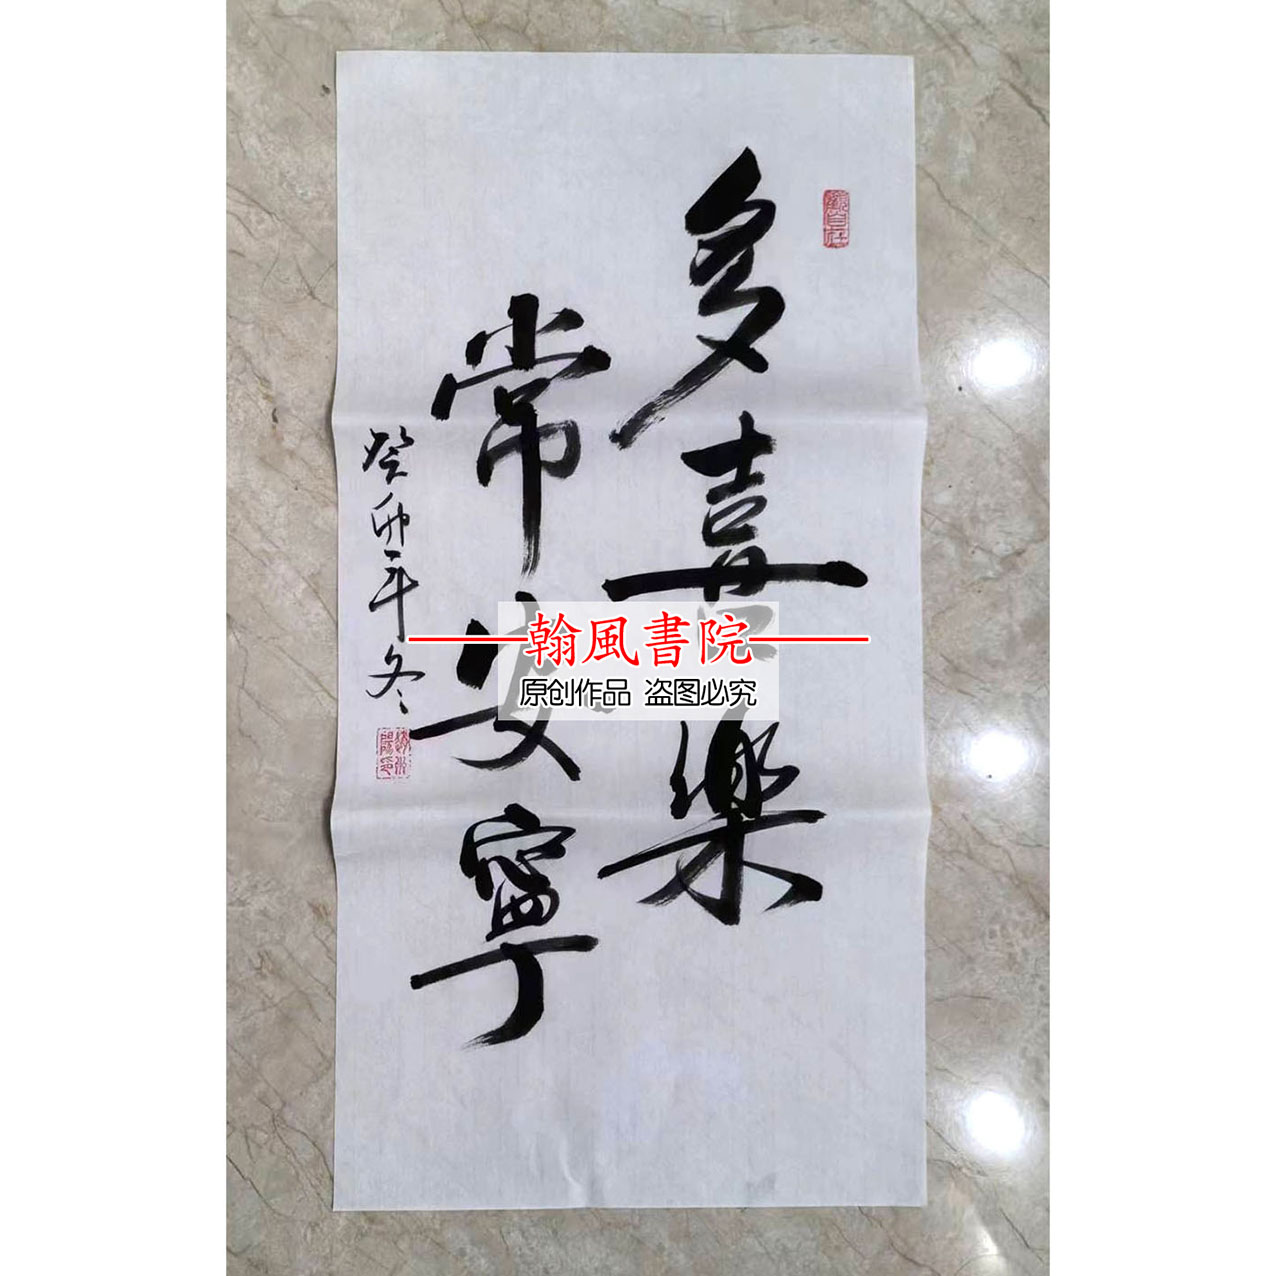 多喜樂
常安寧
癸卯年冬
觀自在
翰風書院
原创作品 盗图必究